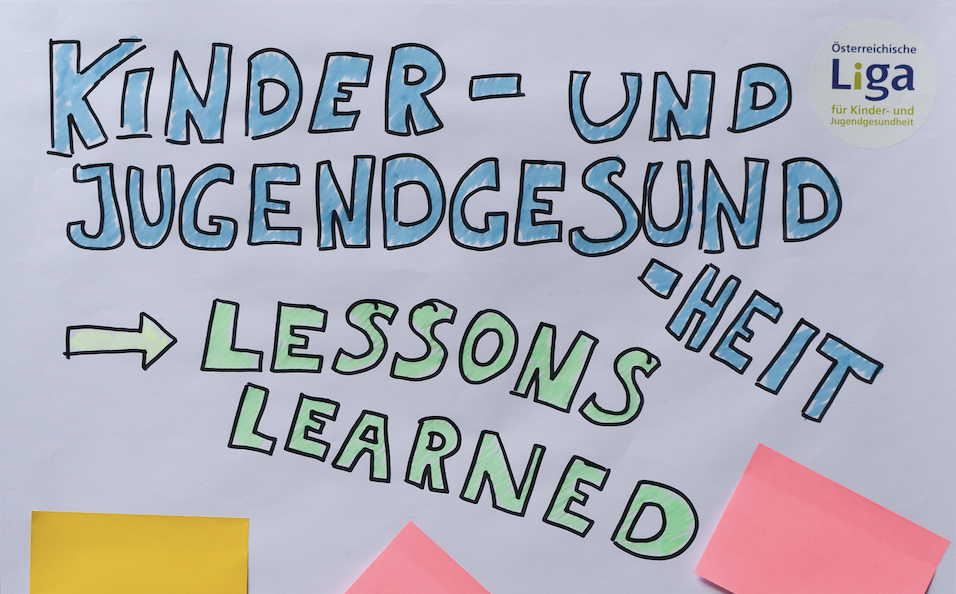 KINDER- UND
JUGENDGESUND
-HEIT
LESSONS
LEARNED
Österreichische
Liga
für Kinder- und
Jugendgesundheit